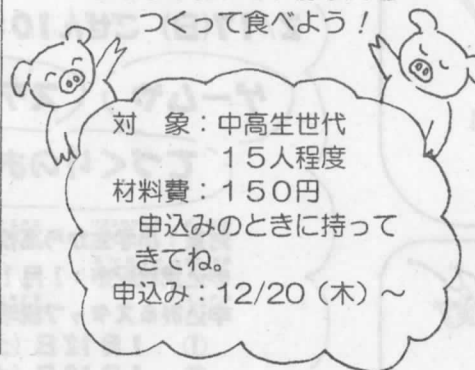 つくって食べよう！
対　象：中高生世代
１５人程度
材料費：１５０円
申込みのときに持って
きてね。
申込み：12/20（木）～